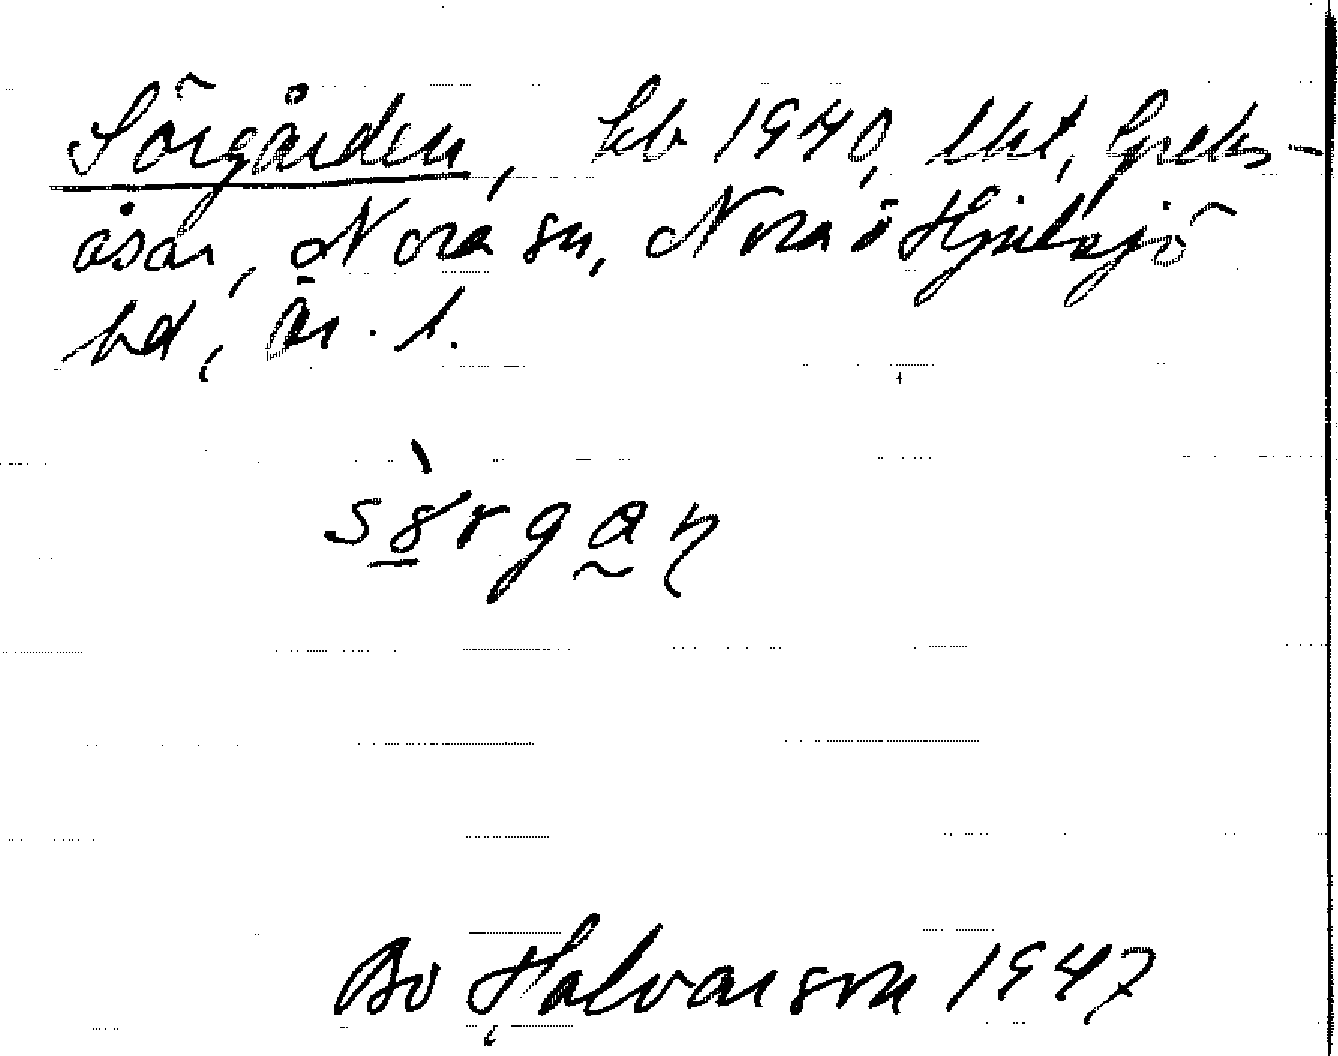 Sörgården, kb 1940, lht, Greks-
åsar, Nora sn, Nora o Hjulsjö
bd, Ör. l.
Bo Halvarson 1947